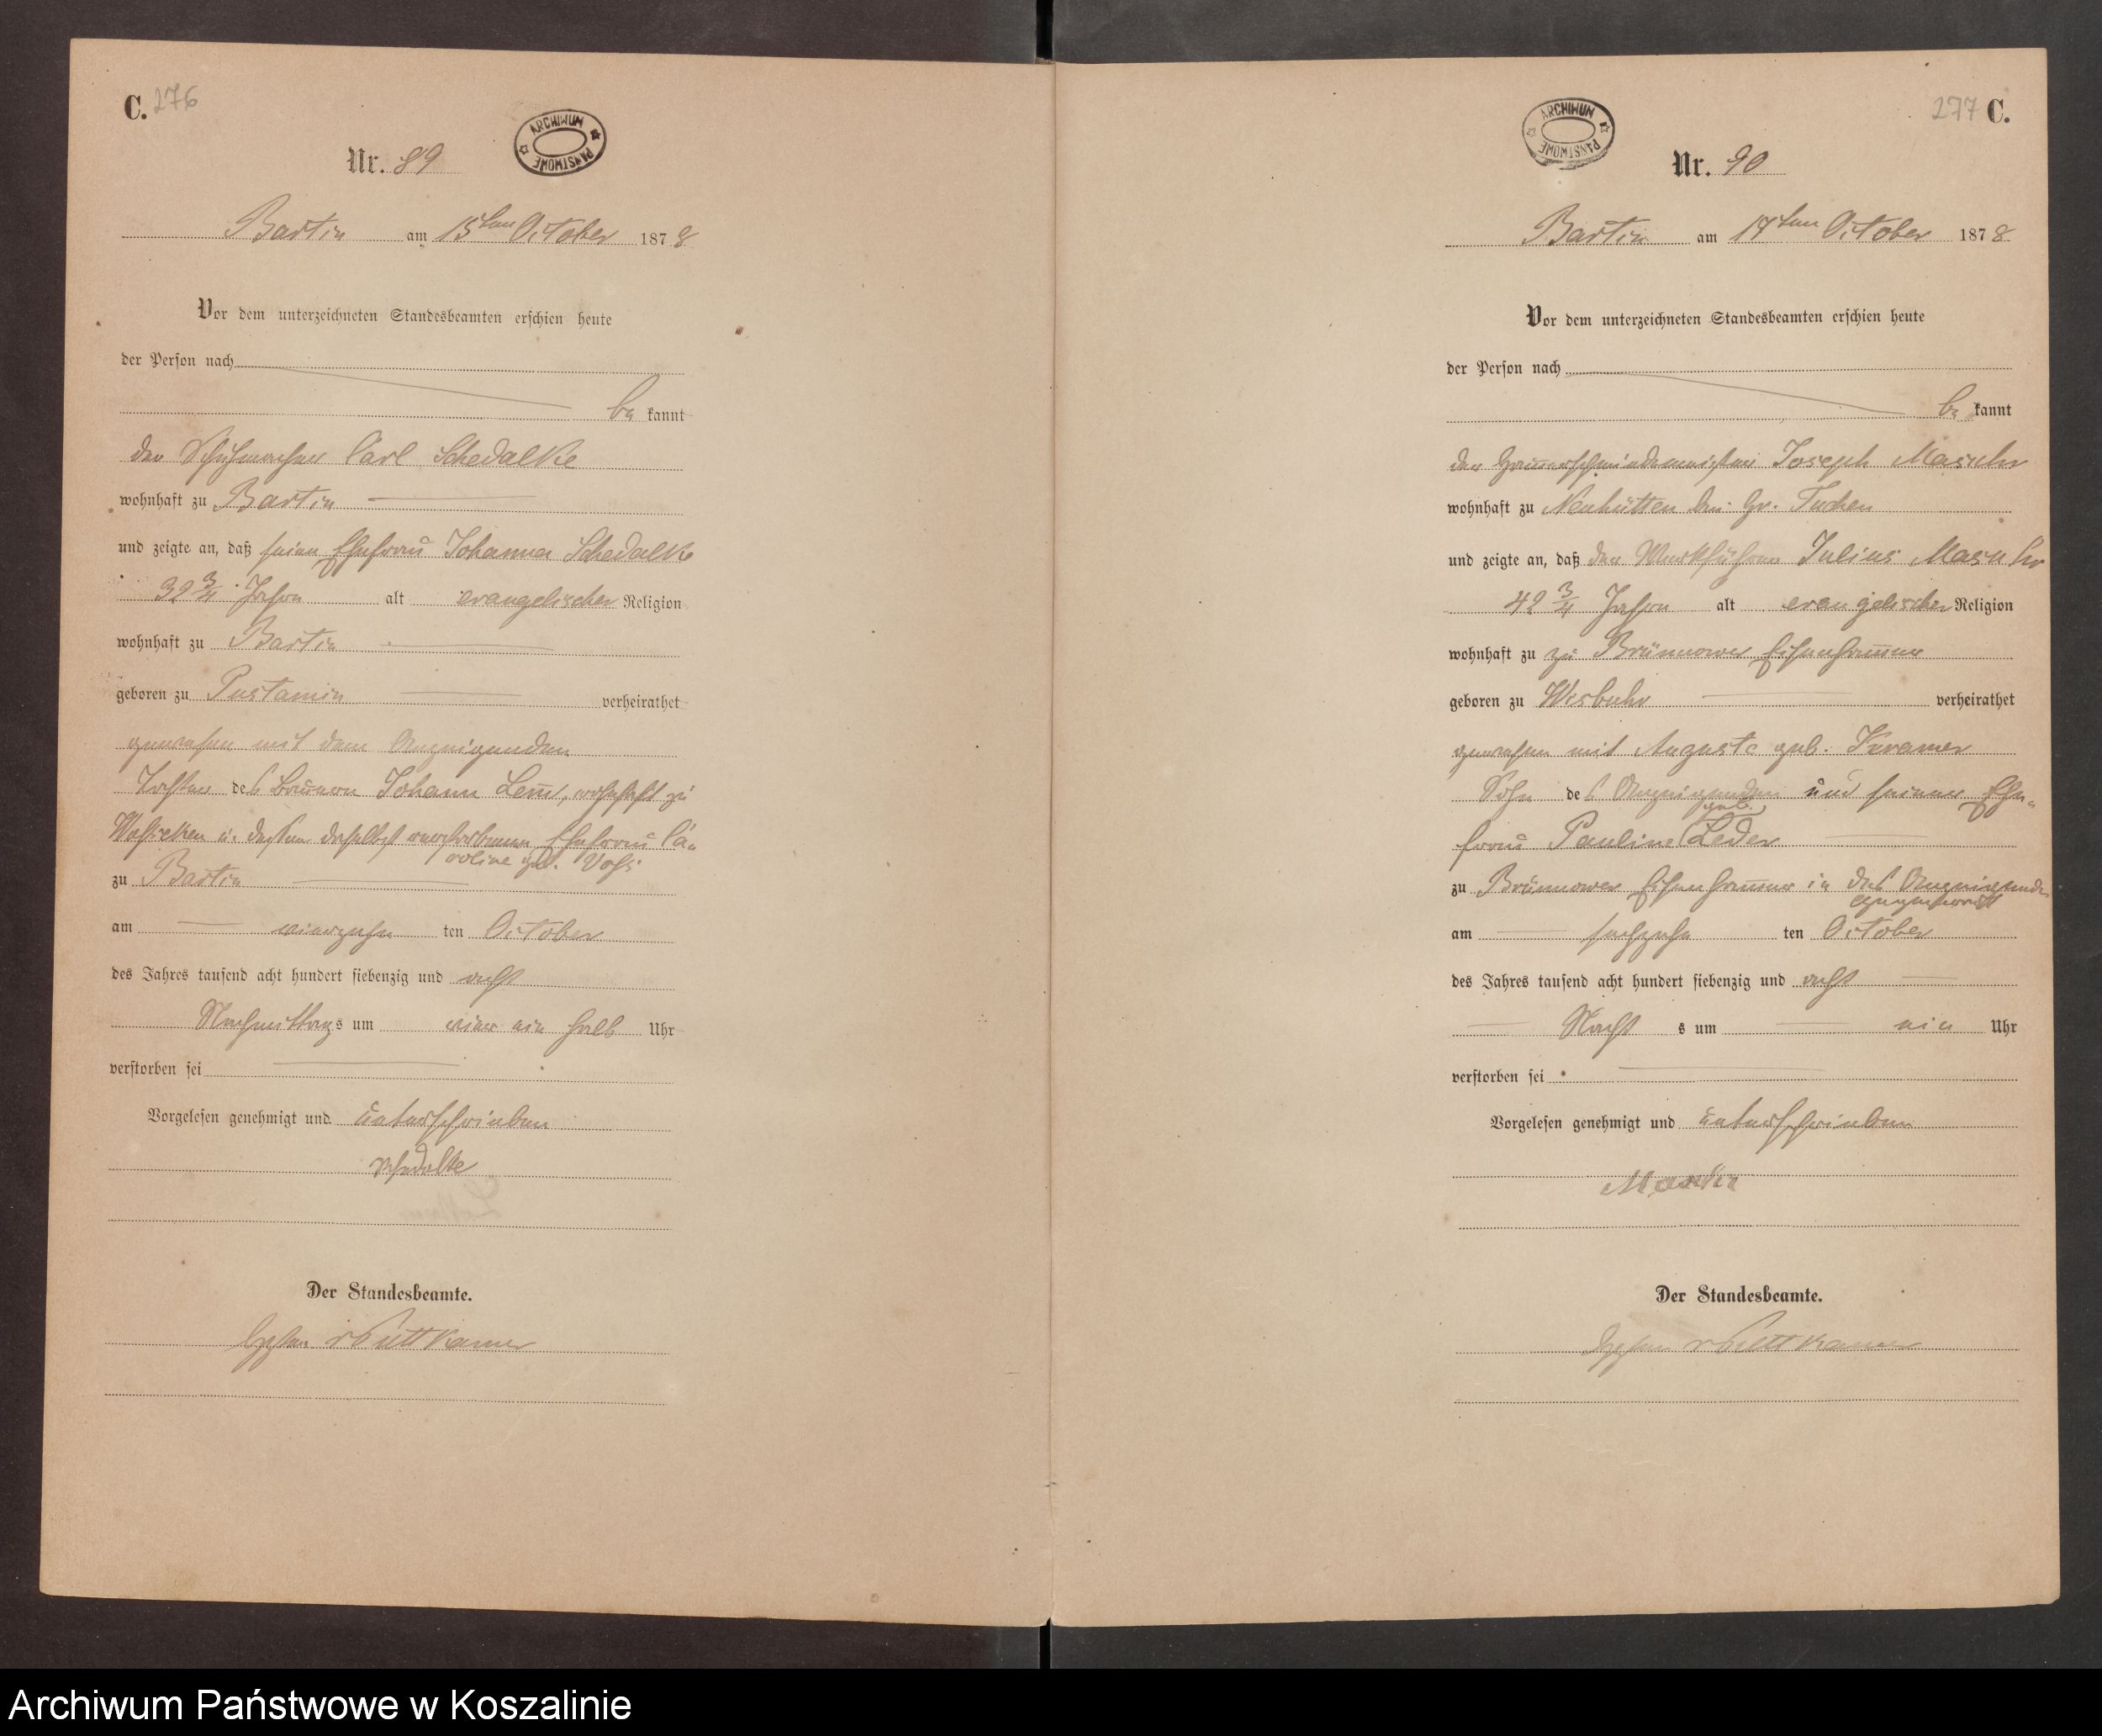 C. 276
ARCHIWUM PAŃSTWOWE
Nr. 89
Bartin am 15ten October 1878
Vor dem unterzeichneten Standesbeamten erschien heute
der Person nach
be kannt
der Schuhmacher Carl Schedalke
wohnhaft zu Bartin
und zeigte an, daß seine Ehefrau Johanna Schedalke
32 3/4 Jahre alt evangelischer Religion
wohnhaft zu Bartin
geboren zu Pustamin verheirathet
gewesen mit dem Anzeigenden
Tochter des Bauern Johann, wohnhaft zu
u. dessen daselbst verstorbenen Ehefrau Ca-
roline geb. Voß
zu Bartin
am vierzehn ten October
des Jahres tausend acht hundert siebenzig und acht
Nachmittags um vier ein halb Uhr
verstorben sei
Vorgelesen genehmigt und unterschrieben
Schedalke
Der Standesbeamte.
v Puttkamer
277 C.
ARCHIWUM PAŃSTWOWE
Nr. 90
Bartin am 17ten October 1878
Vor dem unterzeichneten Standesbeamten erschien heute
der Person nach
be kannt
der Hammerschmiedemeister Joseph
wohnhaft zu Neuhütten bei Gr. Tuchen
und zeigte an, daß der Werkführer Julius
42 3/4 Jahre alt evangelischer Religion
wohnhaft zu zu Brünnower Eisenhammer
geboren zu Wisbuhr verheirathet
gewesen mit Auguste geb. Kramer
Sohn des Anzeigenden und seiner Ehe-
frau Pauline geb. Leder
zu Brünnower Eisenhammer in des Anzeigenden
Gegenwart
am sechzehn ten October
des Jahres tausend acht hundert siebenzig und acht
Nacht s um ein Uhr
verstorben sei
Vorgelesen genehmigt und unterschrieben
Der Standesbeamte.
v Puttkamer
Archiwum Państwowe w Koszalinie